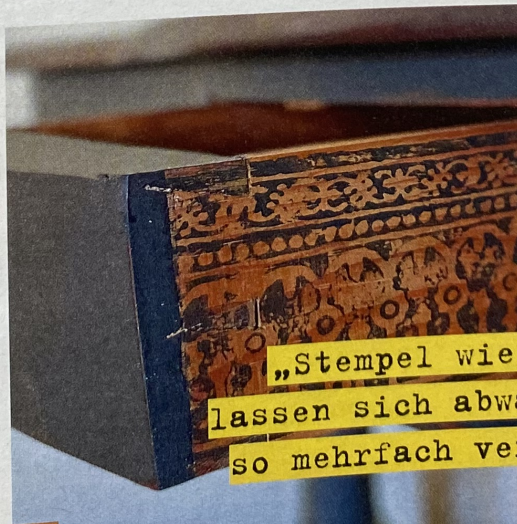 „Stempel wie
lassen sich abwa
so mehrfach ve